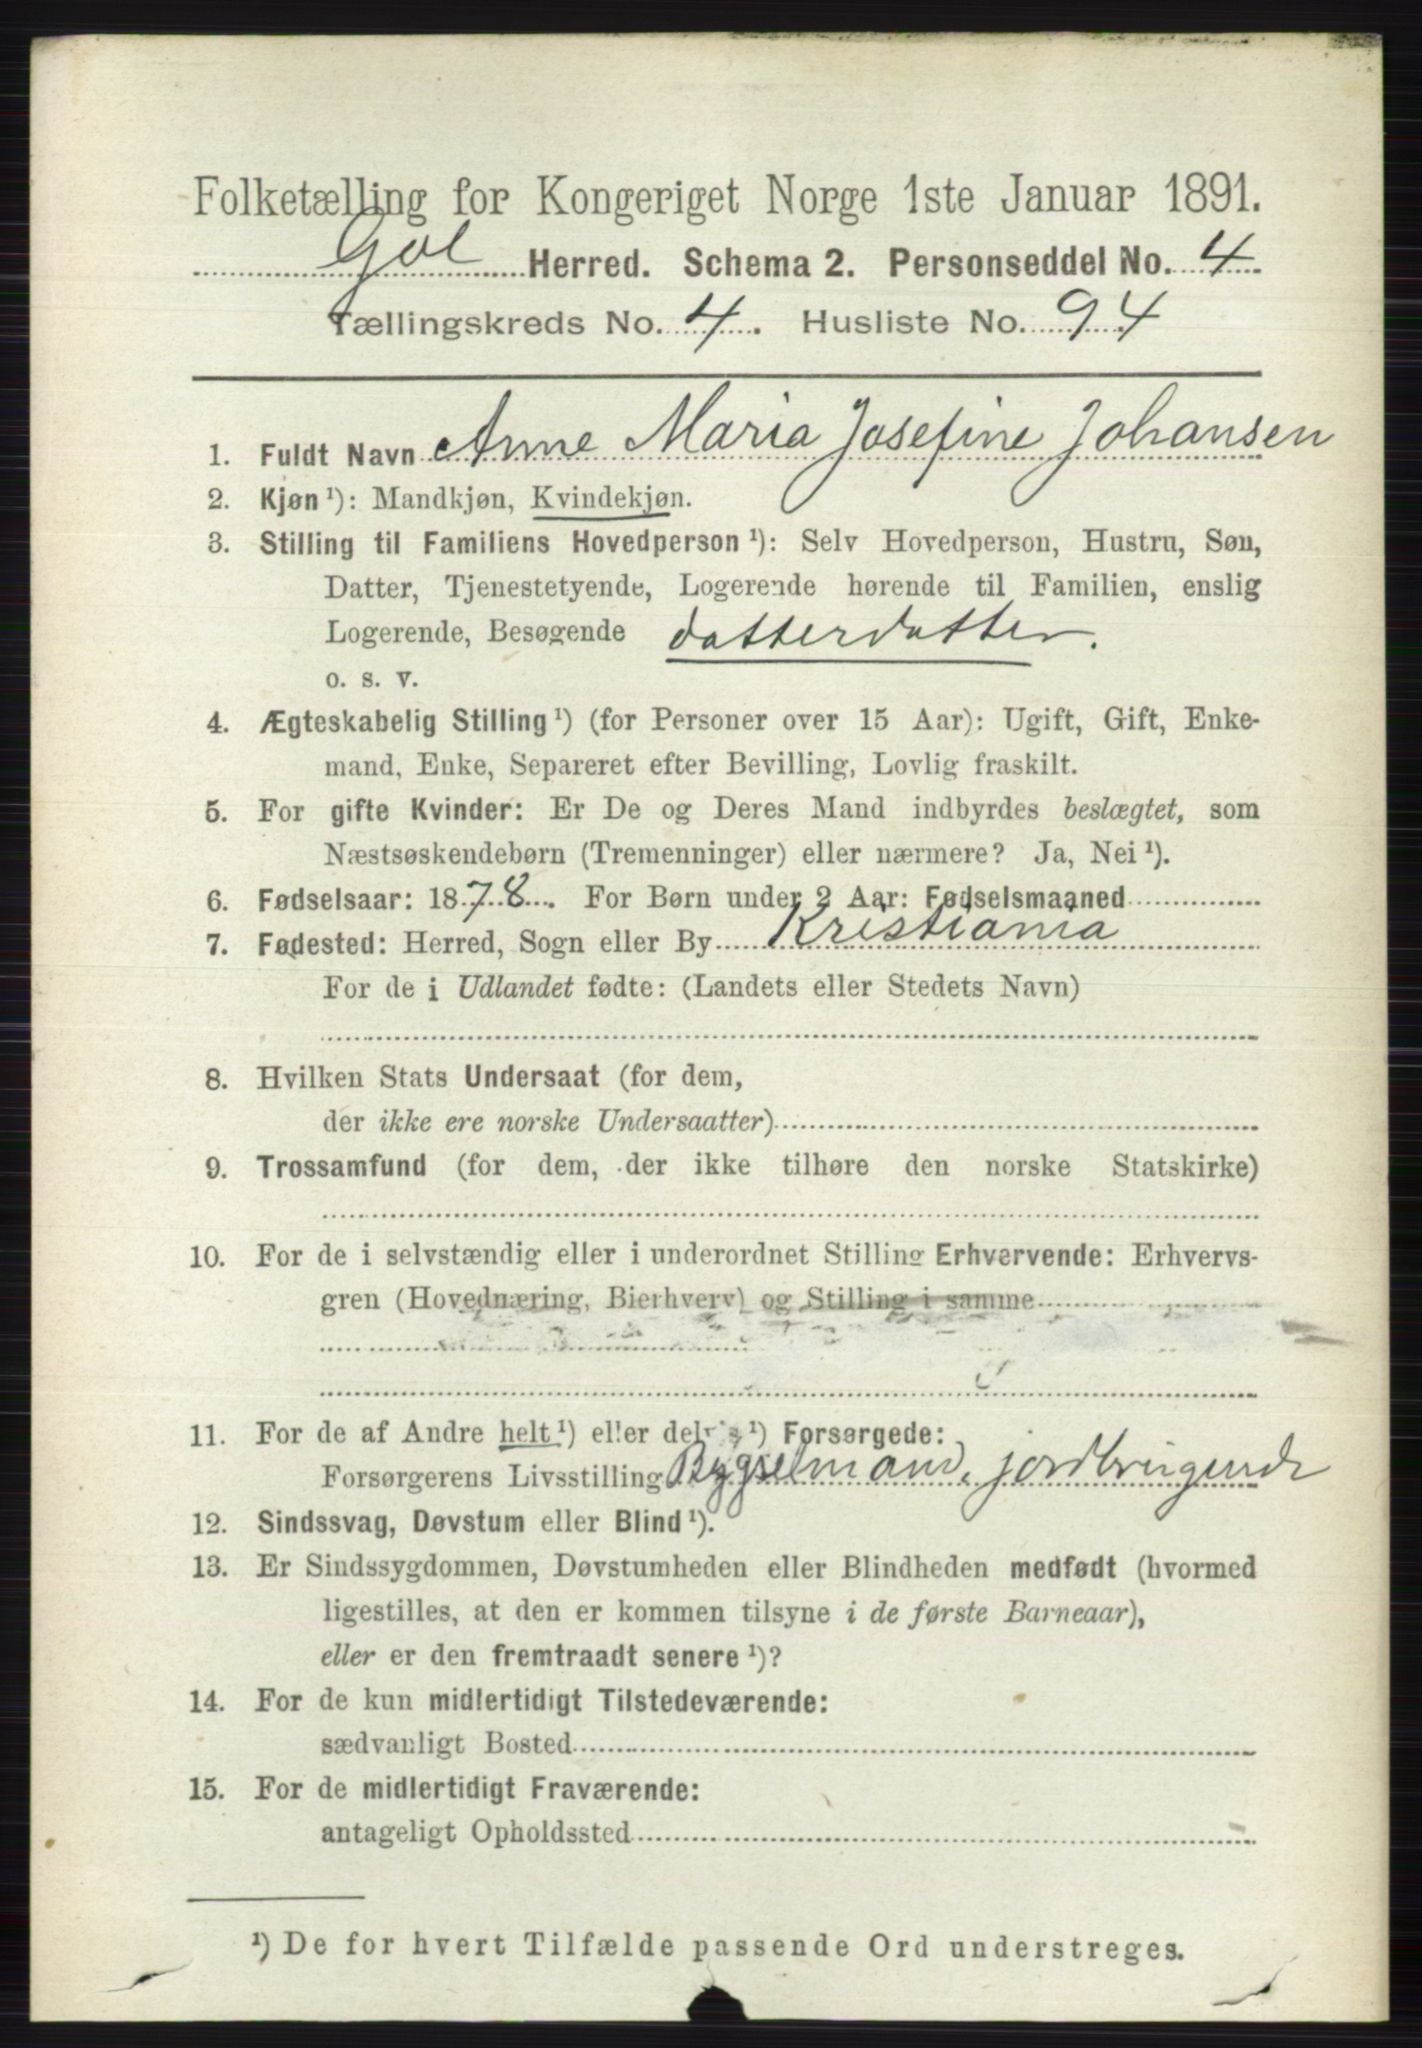 Folketælling for Kongeriget Norge 1ste Januar 1891.
Gol Herred. Schema 2. Personseddel No. 4
Tællingskreds No. 4. Husliste No. 94
1. Fuldt Navn Anne Maria Josefine Johansen
2. Kjøn ¹): Mandkjøn, Kvindekjøn.
3. Stilling til Familiens Hovedperson ¹): Selv Hovedperson, Hustru, Søn,
Datter, Tjenestetyende, Logerende hørende til Familien, enslig
Logerende, Besøgende datterdatter.
o. s. v.
4. Ægteskabelig Stilling ¹) (for Personer over 15 Aar): Ugift, Gift, Enke-
mand, Enke, Separeret efter Bevilling, Lovlig fraskilt.
5. For gifte Kvinder: Er De og Deres Mand indbyrdes beslægtet, som
Næstsøskendebørn (Tremenninger) eller nærmere? Ja, Nei ¹).
6. Fødselsaar: 1878. For Børn under 2 Aar: Fødselsmaaned
7. Fødested: Herred, Sogn eller By Kristiania
For de i Udlandet fødte: (Landets eller Stedets Navn)
8. Hvilken Stats Undersaat (for dem,
der ikke ere norske Undersaatter)
9. Trossamfund (for dem, der ikke tilhøre den norske Statskirke)
10. For de i selvstændig eller i underordnet Stilling Erhvervende: Erhvervs-
gren (Hovednæring, Bierhverv) og Stilling i samme
11. For de af Andre helt ¹) eller delvis ¹) Forsørgede:
Forsørgerens Livsstilling Bygselmand, jordbrugende
12. Sindssvag, Døvstum eller Blind ¹).
13. Er Sindssygdommen, Døvstumheden eller Blindheden medfødt (hvormed
ligestilles, at den er kommen tilsyne i de første Barneaar),
eller er den fremtraadt senere ¹)?
14. For de kun midlertidigt Tilstedeværende:
sædvanligt Bosted
15. For de midlertidigt Fraværende:
antageligt Opholdssted
¹) De for hvert Tilfælde passende Ord understreges.